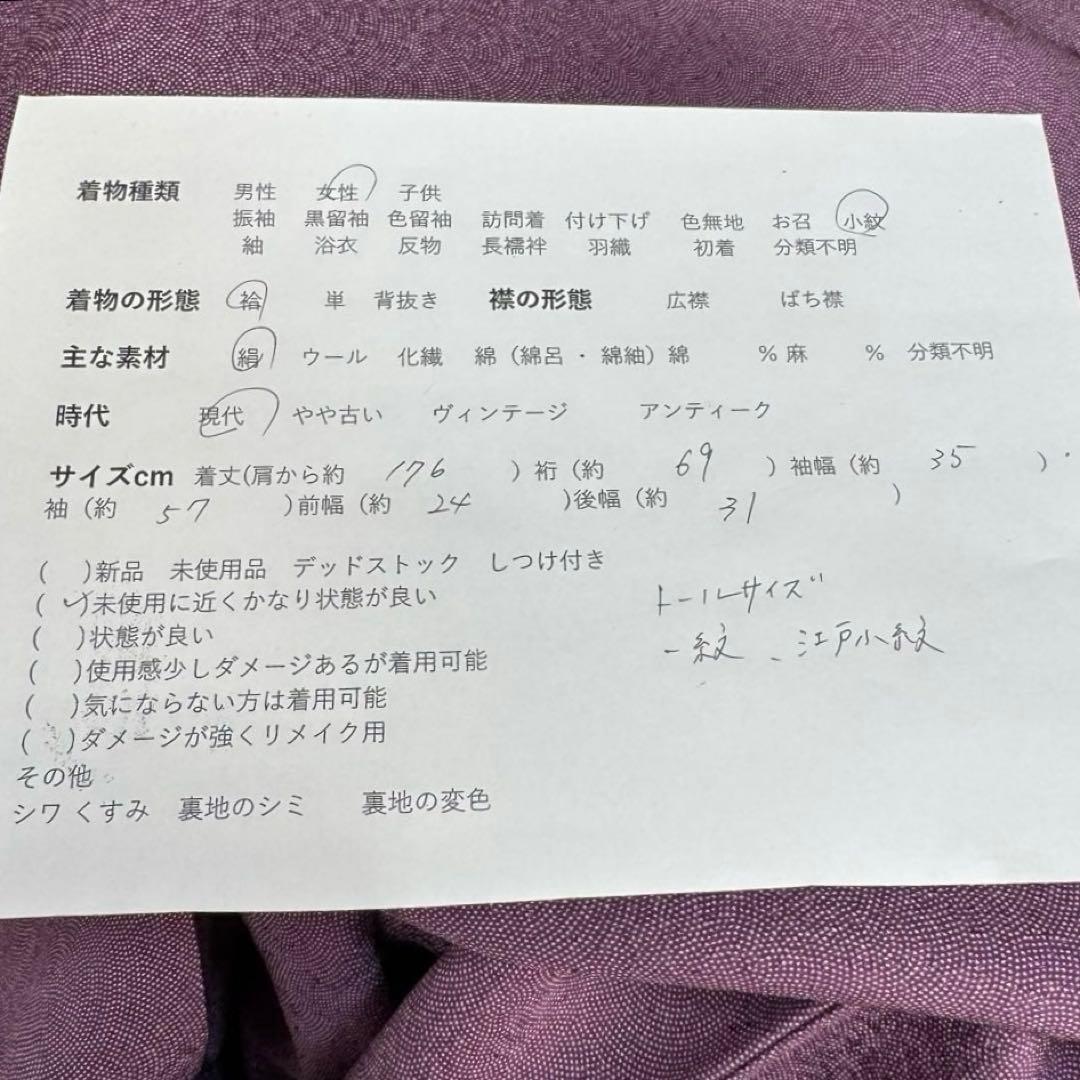 着物種類 男性 女性 子供
振袖 黒留袖 色留袖 訪問着 付け下げ 色無地 お召 小紋
紬 浴衣 反物 長襦袢 羽織 初着 分類不明
着物の形態 袷 単 背抜き 襟の形態 広襟 ばち襟
主な素材 絹 ウール 化繊 綿（綿呂 ・ 綿紬）綿 % 麻 % 分類不明
時代 現代 やや古い ヴィンテージ アンティーク
サイズcm 着丈(肩から約 176 ) 裄（約 69 ）袖幅（約 35 ）
袖（約 57 )前幅（約 24 )後幅（約 31 ）
( )新品 未使用品 デッドストック しつけ付き
( ✓)未使用に近くかなり状態が良い
( )状態が良い
( )使用感少しダメージあるが着用可能
( )気にならない方は着用可能
( )ダメージが強くリメイク用
その他
シワ くすみ 裏地のシミ 裏地の変色
トールサイズ
一紋、江戸小紋